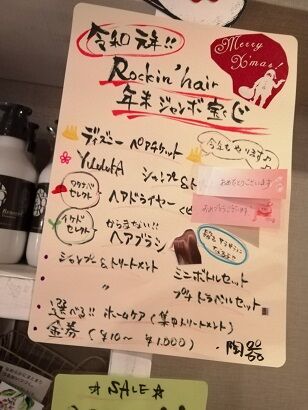 令和元年!!
Merry X'mas!
Rockin' hair
年末ジャンボ宝くじ
今年もやります♪
ディズニー ペアチケット
シャンプー&ト
おめでとうございます
ワタナベ セレクト
ヘアドライヤー
おめでとうございます
イケダ セレクト
からまない!!
ヘアブラシ
シャンプー&トリートメント
ミニボトルセット
〃
プチトラベルセット
選べる!! ホームケア(集中トリートメント)
金券 (¥10〜 ¥1,000)
・陶器
☆SALE☆